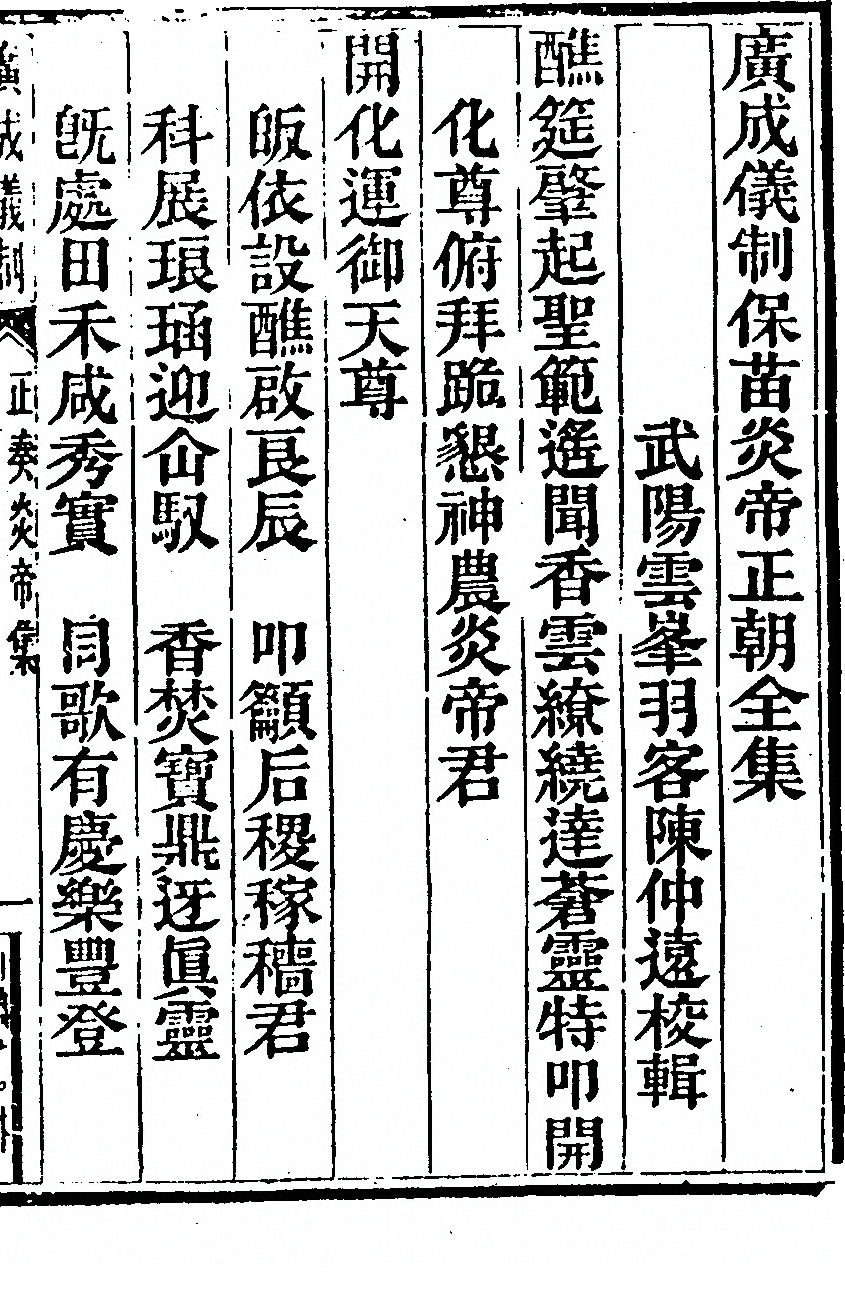 廣成儀制保苗炎帝正朝全集
武陽雲峯羽客陳仲遠校輯
醮筵肇起聖範遙聞香雲繚繞達蒼靈特叩開
化尊俯拜跪懇神農炎帝君
開化運御天尊
皈依設醮啟良辰　叩籲后稷稼穡君
科展琅琅迎仚馭　香焚寶鼎迓眞靈
既處田禾咸秀實　同歌有慶樂豐登
廣成儀制　正奏炎帝集　一